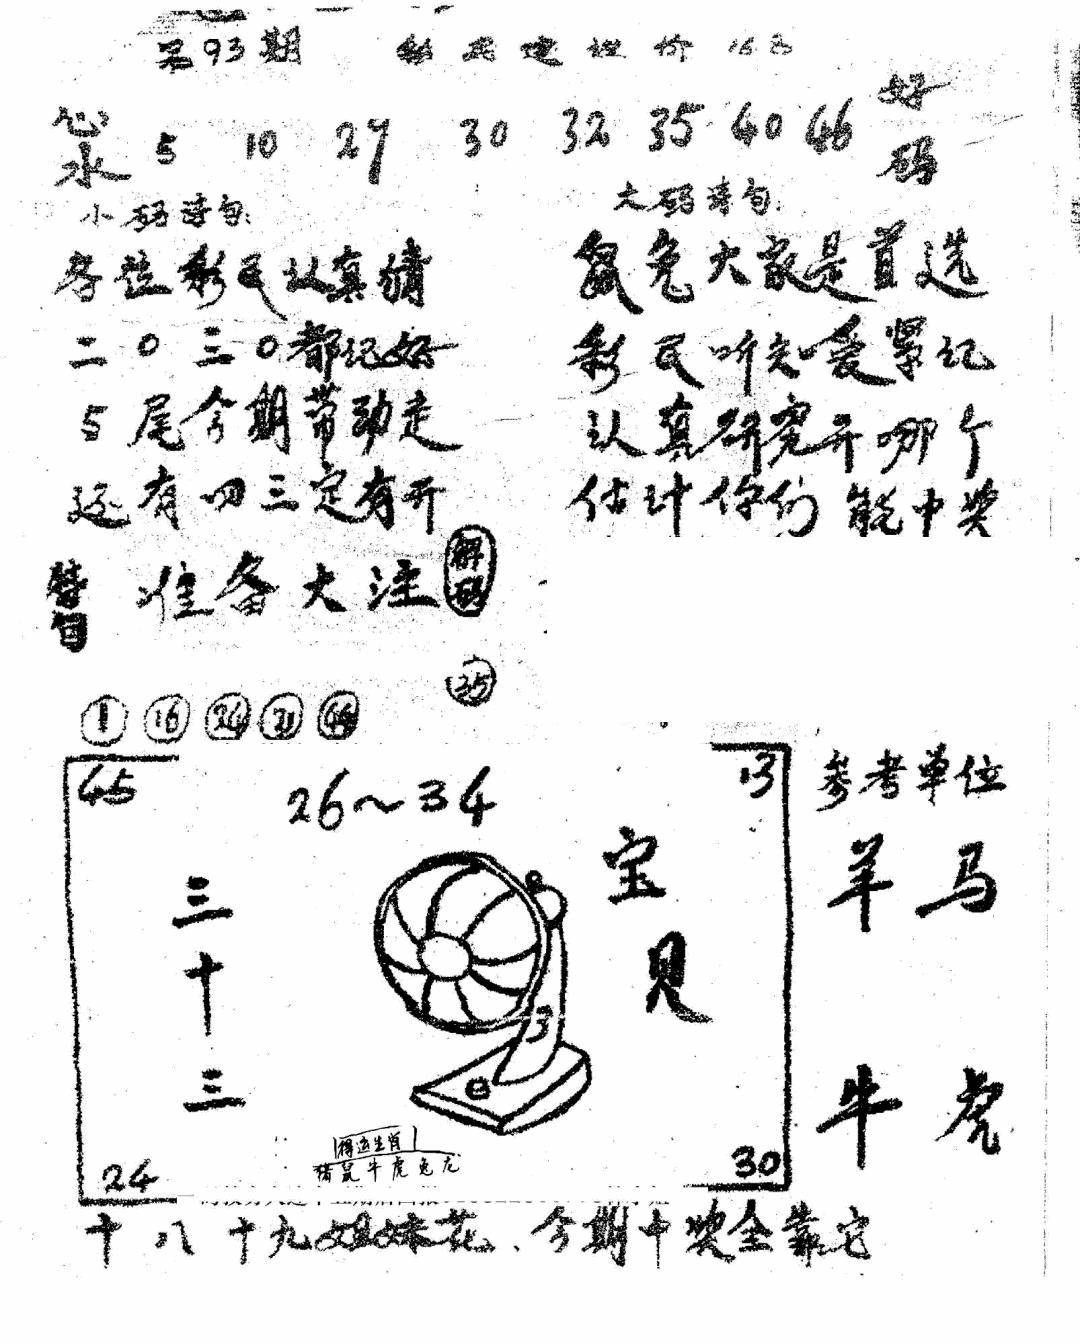 第93期
心水 5 10 29 30 32 35 40 46 好码
小码诗句:
大码诗句:
各位彩民认真猜
鼠兔大家是首选
二0三0都记好
彩民听知要紧记
5尾今期带动走
认真研究开哪个
还有四三定有开
估计你们能中奖
准备大注
解码
35
1 16 24 21 44
45 26～34 13
参考单位
三十三
宝贝
羊 马
牛 虎
得运生肖
猪鼠牛虎兔龙
24 30
十八十九姐妹花、今期中奖全靠它